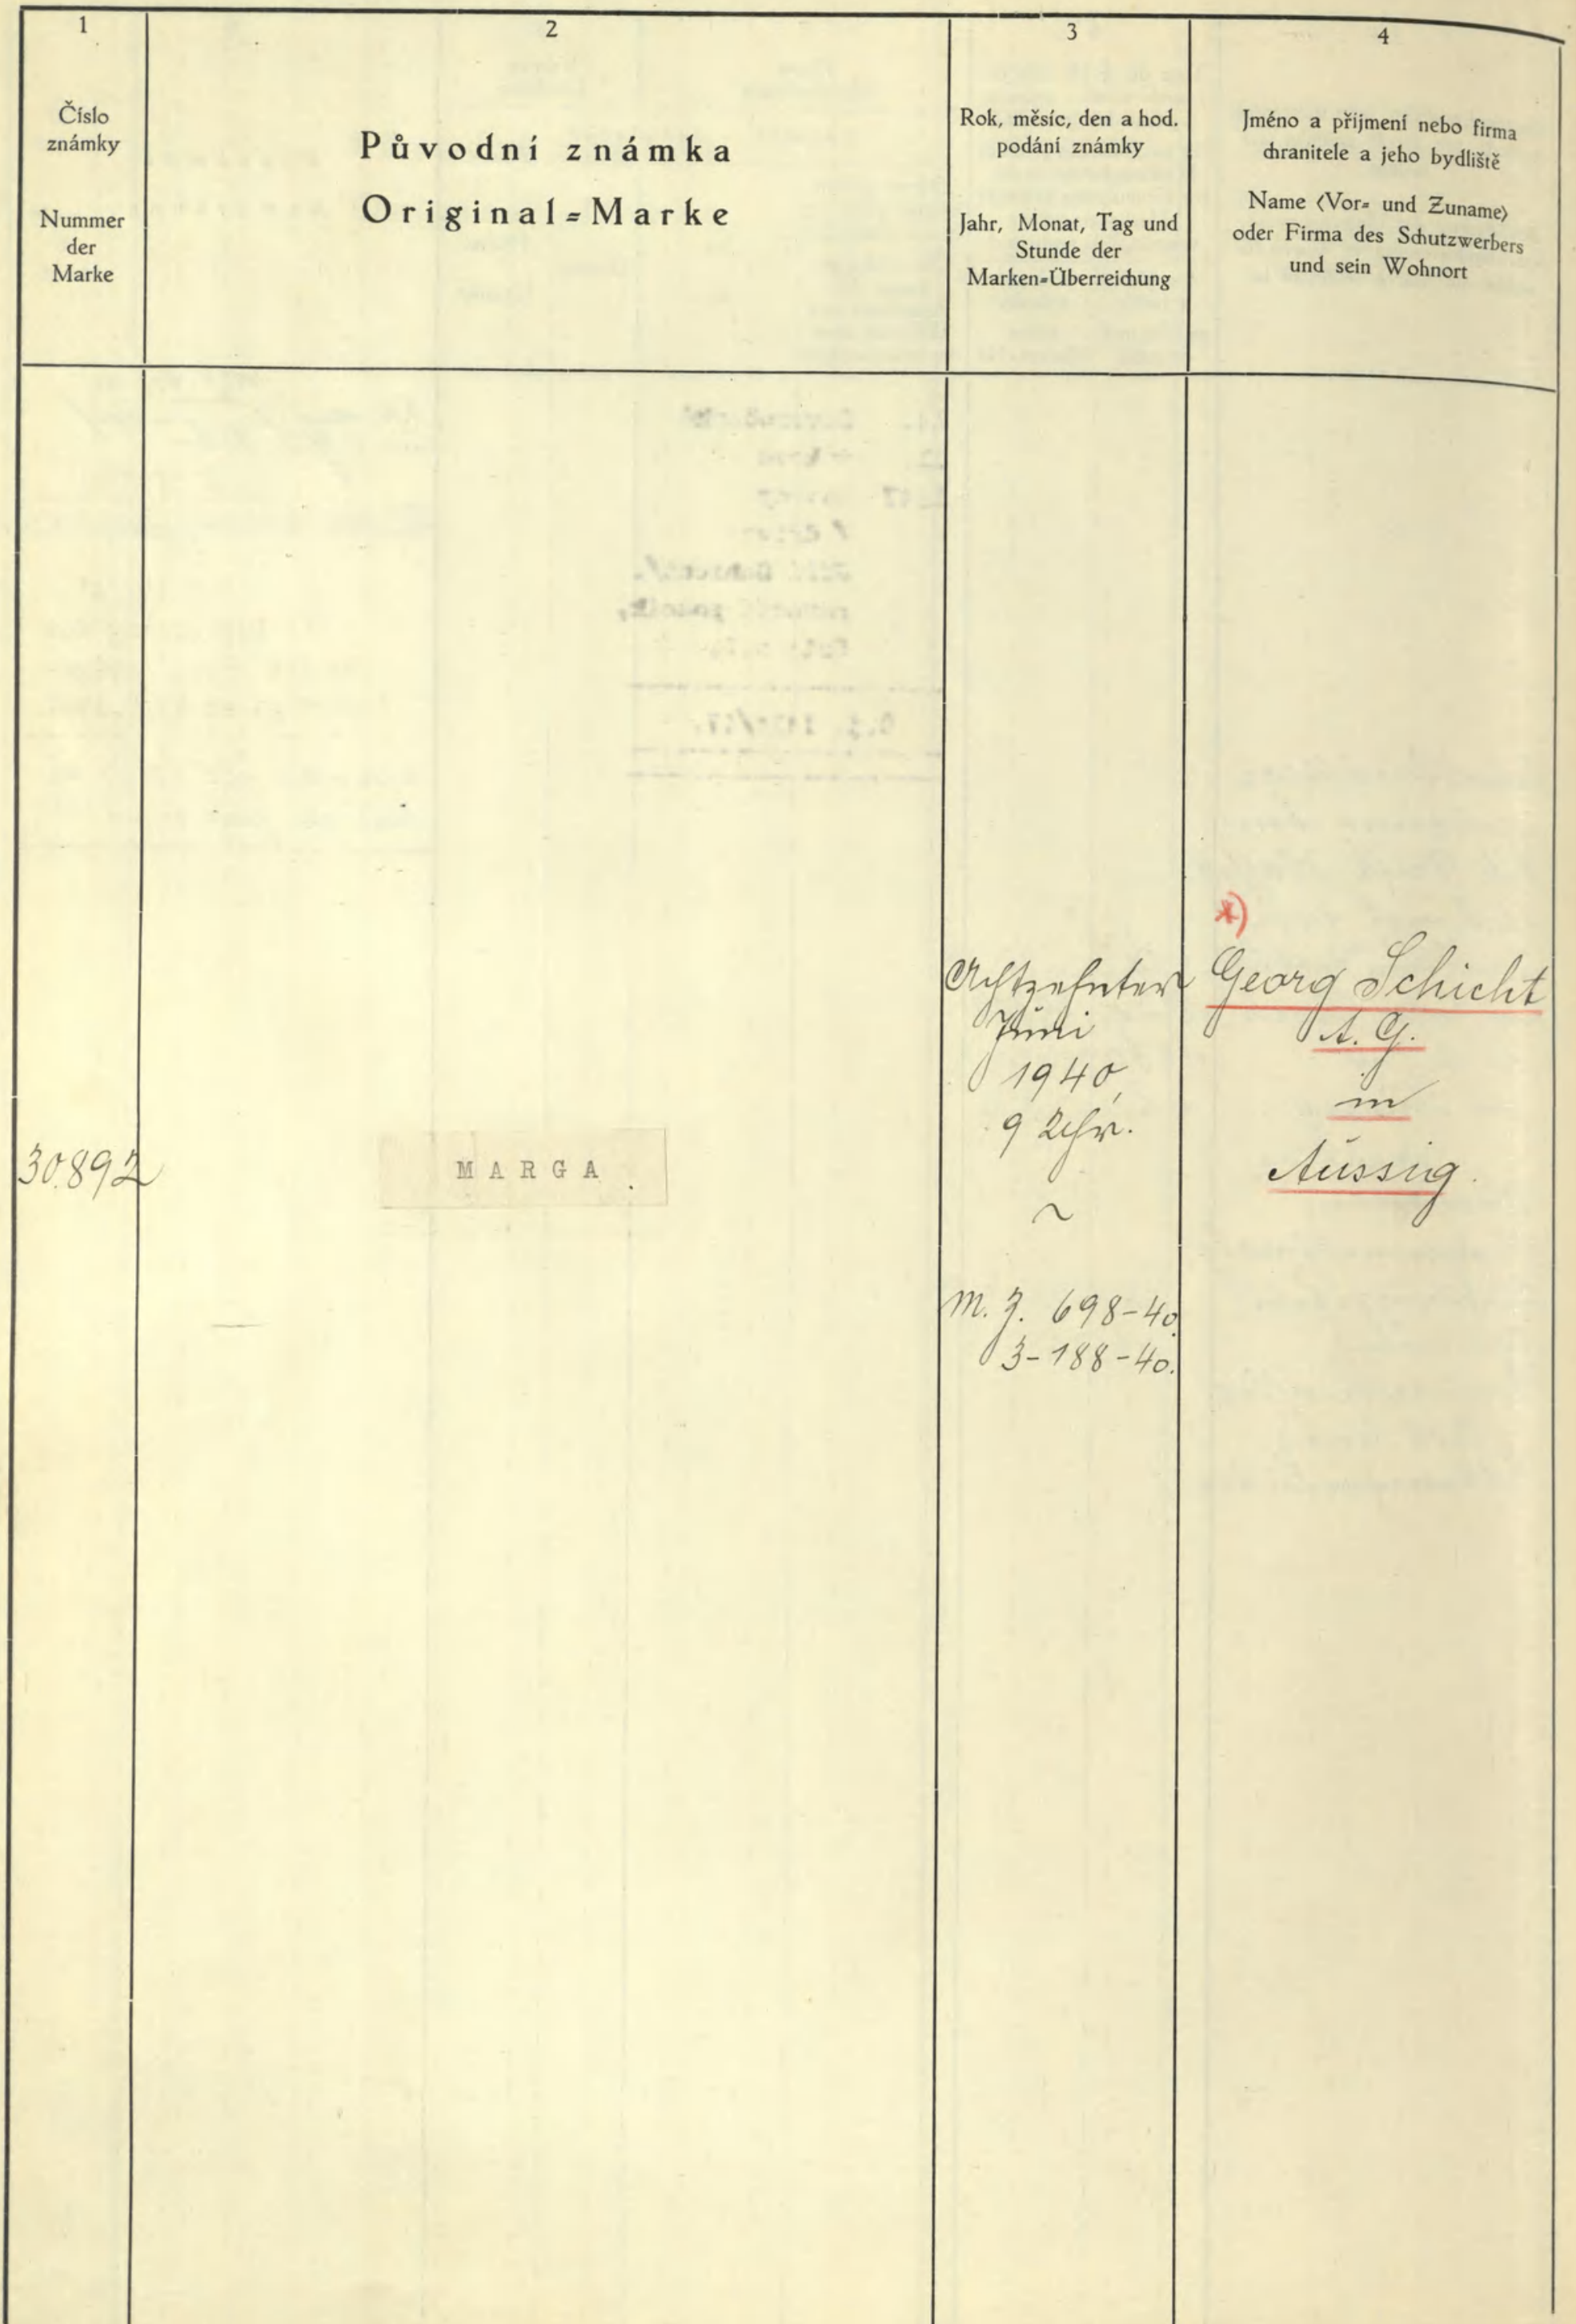 1
Číslo
známky
Nummer
der
Marke
2
Původní známka
Original=Marke
3
Rok, měsíc, den a hod.
podání známky
Jahr, Monat, Tag und
Stunde der
Marken=Überreichung
4
Jméno a přijmení nebo firma
chranitele a jeho bydliště
Name (Vor= und Zuname)
oder Firma des Schutzwerbers
und sein Wohnort
30.892
MARGA.
Achtzehnter
Juni
1940,
9 Uhr.
~
M. Z. 698-40.
3-188-40.
*)
Georg Schicht
A. G.
in
Aussig.